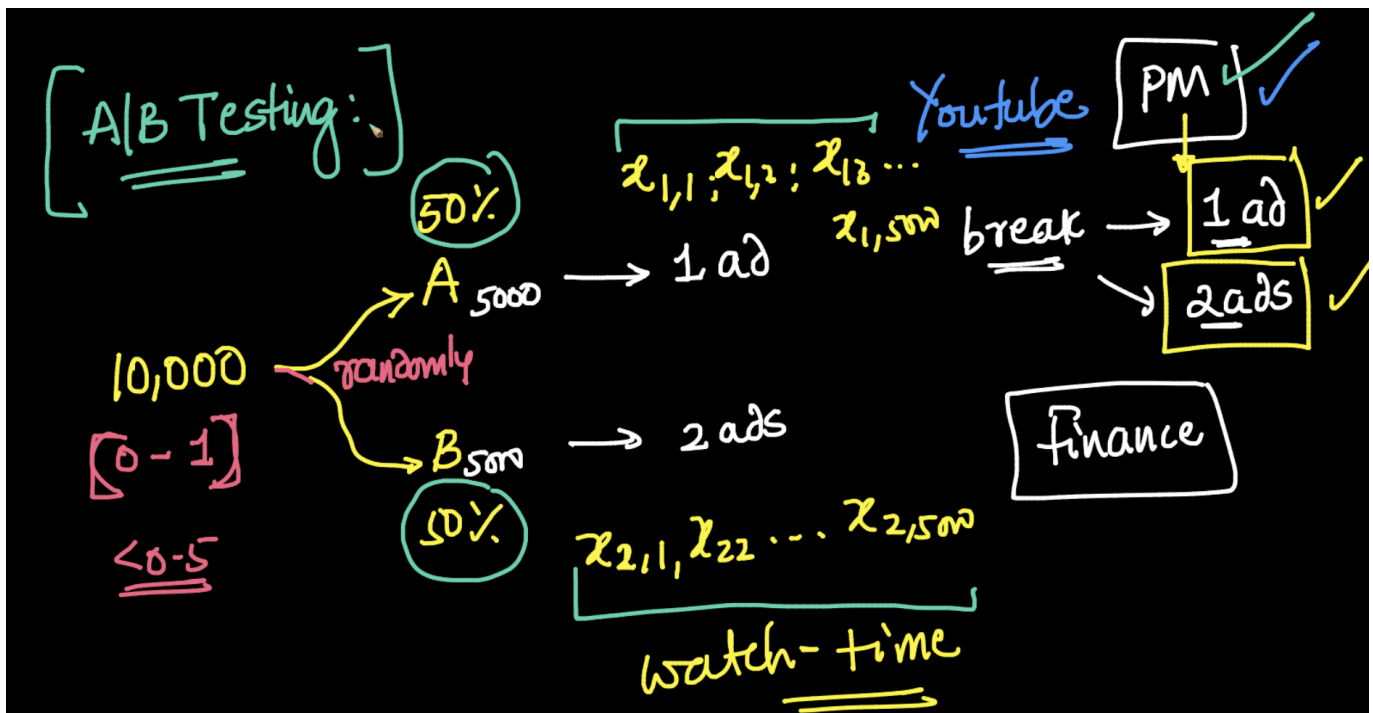 A/B Testing:
Youtube
PM
50%
x1,1; x1,2; x13 ...
x1,5000
break
1 ad
2 ads
A 5000
1 ad
10,000
randomly
[0 - 1]
<0-5
B 5000
2 ads
50%
finance
x2,1, x22 ... x2,5000
watch-time